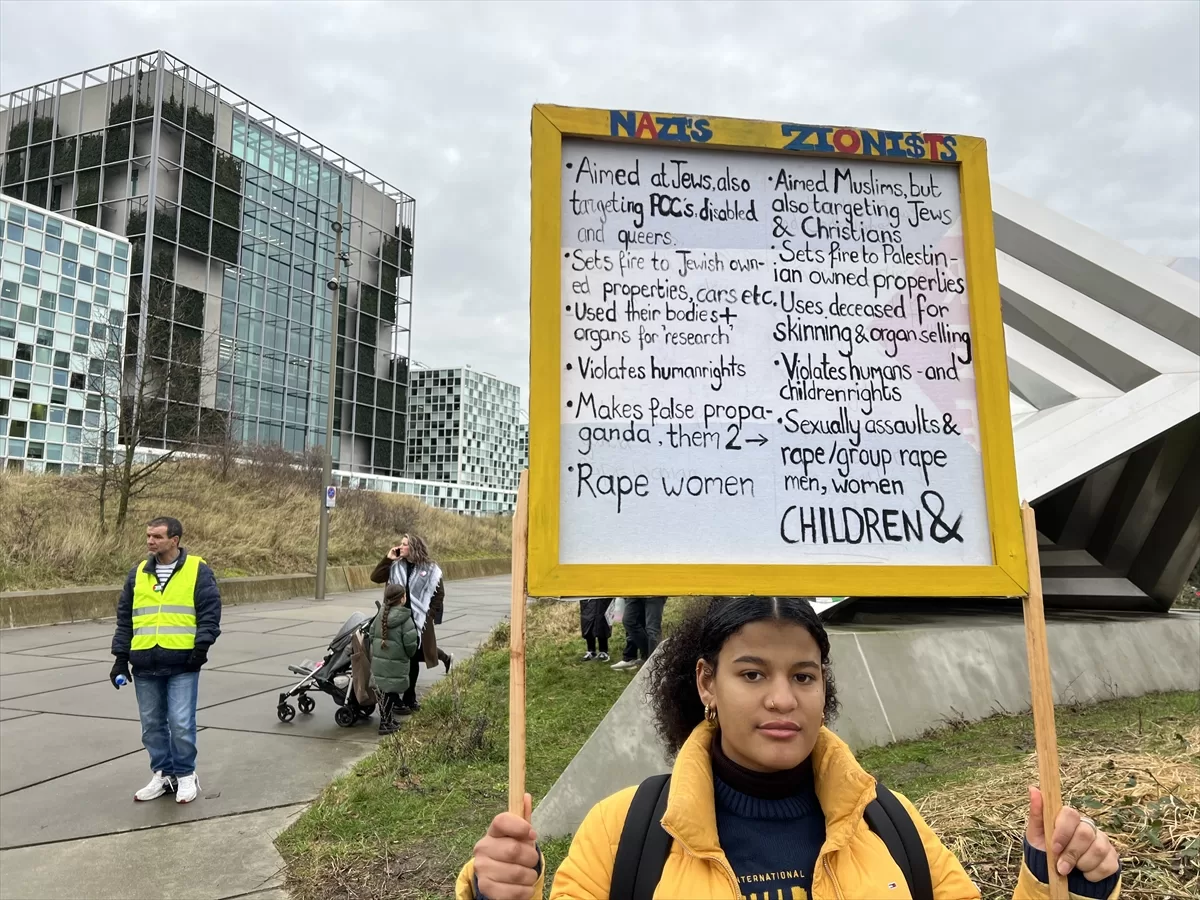 NAZI'S
•Aimed at Jews, also
targeting POC's, disabled
and queers.
•Sets fire to Jewish own-
ed properties, cars etc.
•Used their bodies+
organs for 'research'
•Violates humanrights
•Makes false propa-
ganda, them 2→
•Rape women
ZIONI$TS
•Aimed Muslims, but
also targeting Jews
& Christians
•Sets fire to Palestin-
ian owned properties
•Uses deceased for
skinning & organ selling
•Violates humans-and
childrenrights
•Sexually assaults &
rape/group rape
men, women
CHILDREN &
INTERNATIONAL